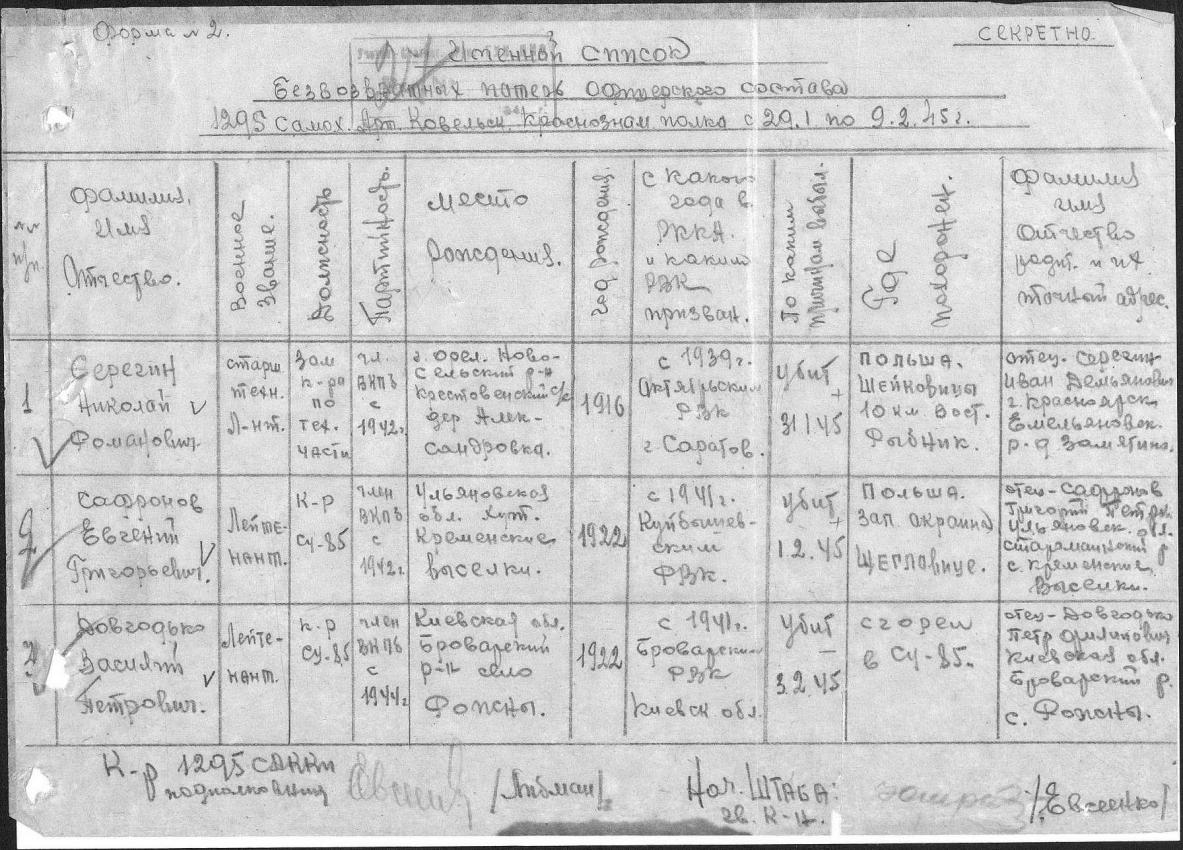 Форма № 2.
СЕКРЕТНО.
Именной список
Безвозвратных потерь Офицерского состава
1295 Самох. Арт. Ковельск. Краснознам полка с 29.1 по 9.2.45г.
№№ п/п.
Фамилия, Имя Отчество.
Военное Звание.
Должность
Партийность.
Место Рождения.
Год рождения.
С какого года в РККА. и каким РВК призван.
По каким причинам выбыл.
Где похоронен.
Фамилия имя отчество родит. и их точный адрес.
1
Серегин
Николай
Романович
старш
техн.
Л-нт.
Зам
к-ра
по
тех.
части
чл.
ВКПБ
с
1942г.
г. Орел. Ново-
сельский р-н
Крестовенский с/с
дер Алек-
сандровка.
1916
с 1939г.
Октябрьским
РВК
г. Саратов.
убит
+
31/1 45
Польша.
Шейновицы
10 км. Вост.
Рыбник.
отец. Серегин
Иван Демьянович
г. Красноярск
Емельяновск.
р-д Замятино.
2
Сафронов
Евгений
Григорьевич.
Лейте-
нант.
К-р
Су-85
член
ВКПБ
с
1942г.
Ульяновская
обл. Хут.
Кременские
выселки.
1922
с 1941г.
Куйбышев-
ским
РВК.
убит
+
1.2.45
Польша.
Зап. окраина
Щегловице.
отец-Сафронов
Григорий Петр.
Ульяновск. обл.
Старомаинский р
с. Кременские
Выселки.
3
Довгодько
Василий
Петрович.
Лейте-
нант.
К-р
Су-85
член
ВКПБ
с
1944г
Киевская обл.
Броварский
р-н село
Рожны.
1922
с 1941г.
Броварским
РВК
Киевск. обл.
убит
3.2.45
сгорел
в Су-85.
отец-Довгодько
Петр Филипович
Киевская обл.
Броварский р.
с. Рожны.
К-р 1295 САККП
подполковник
/Либман/
Нач. ШТАБА:
гв. К-н.
/Евсеенко/